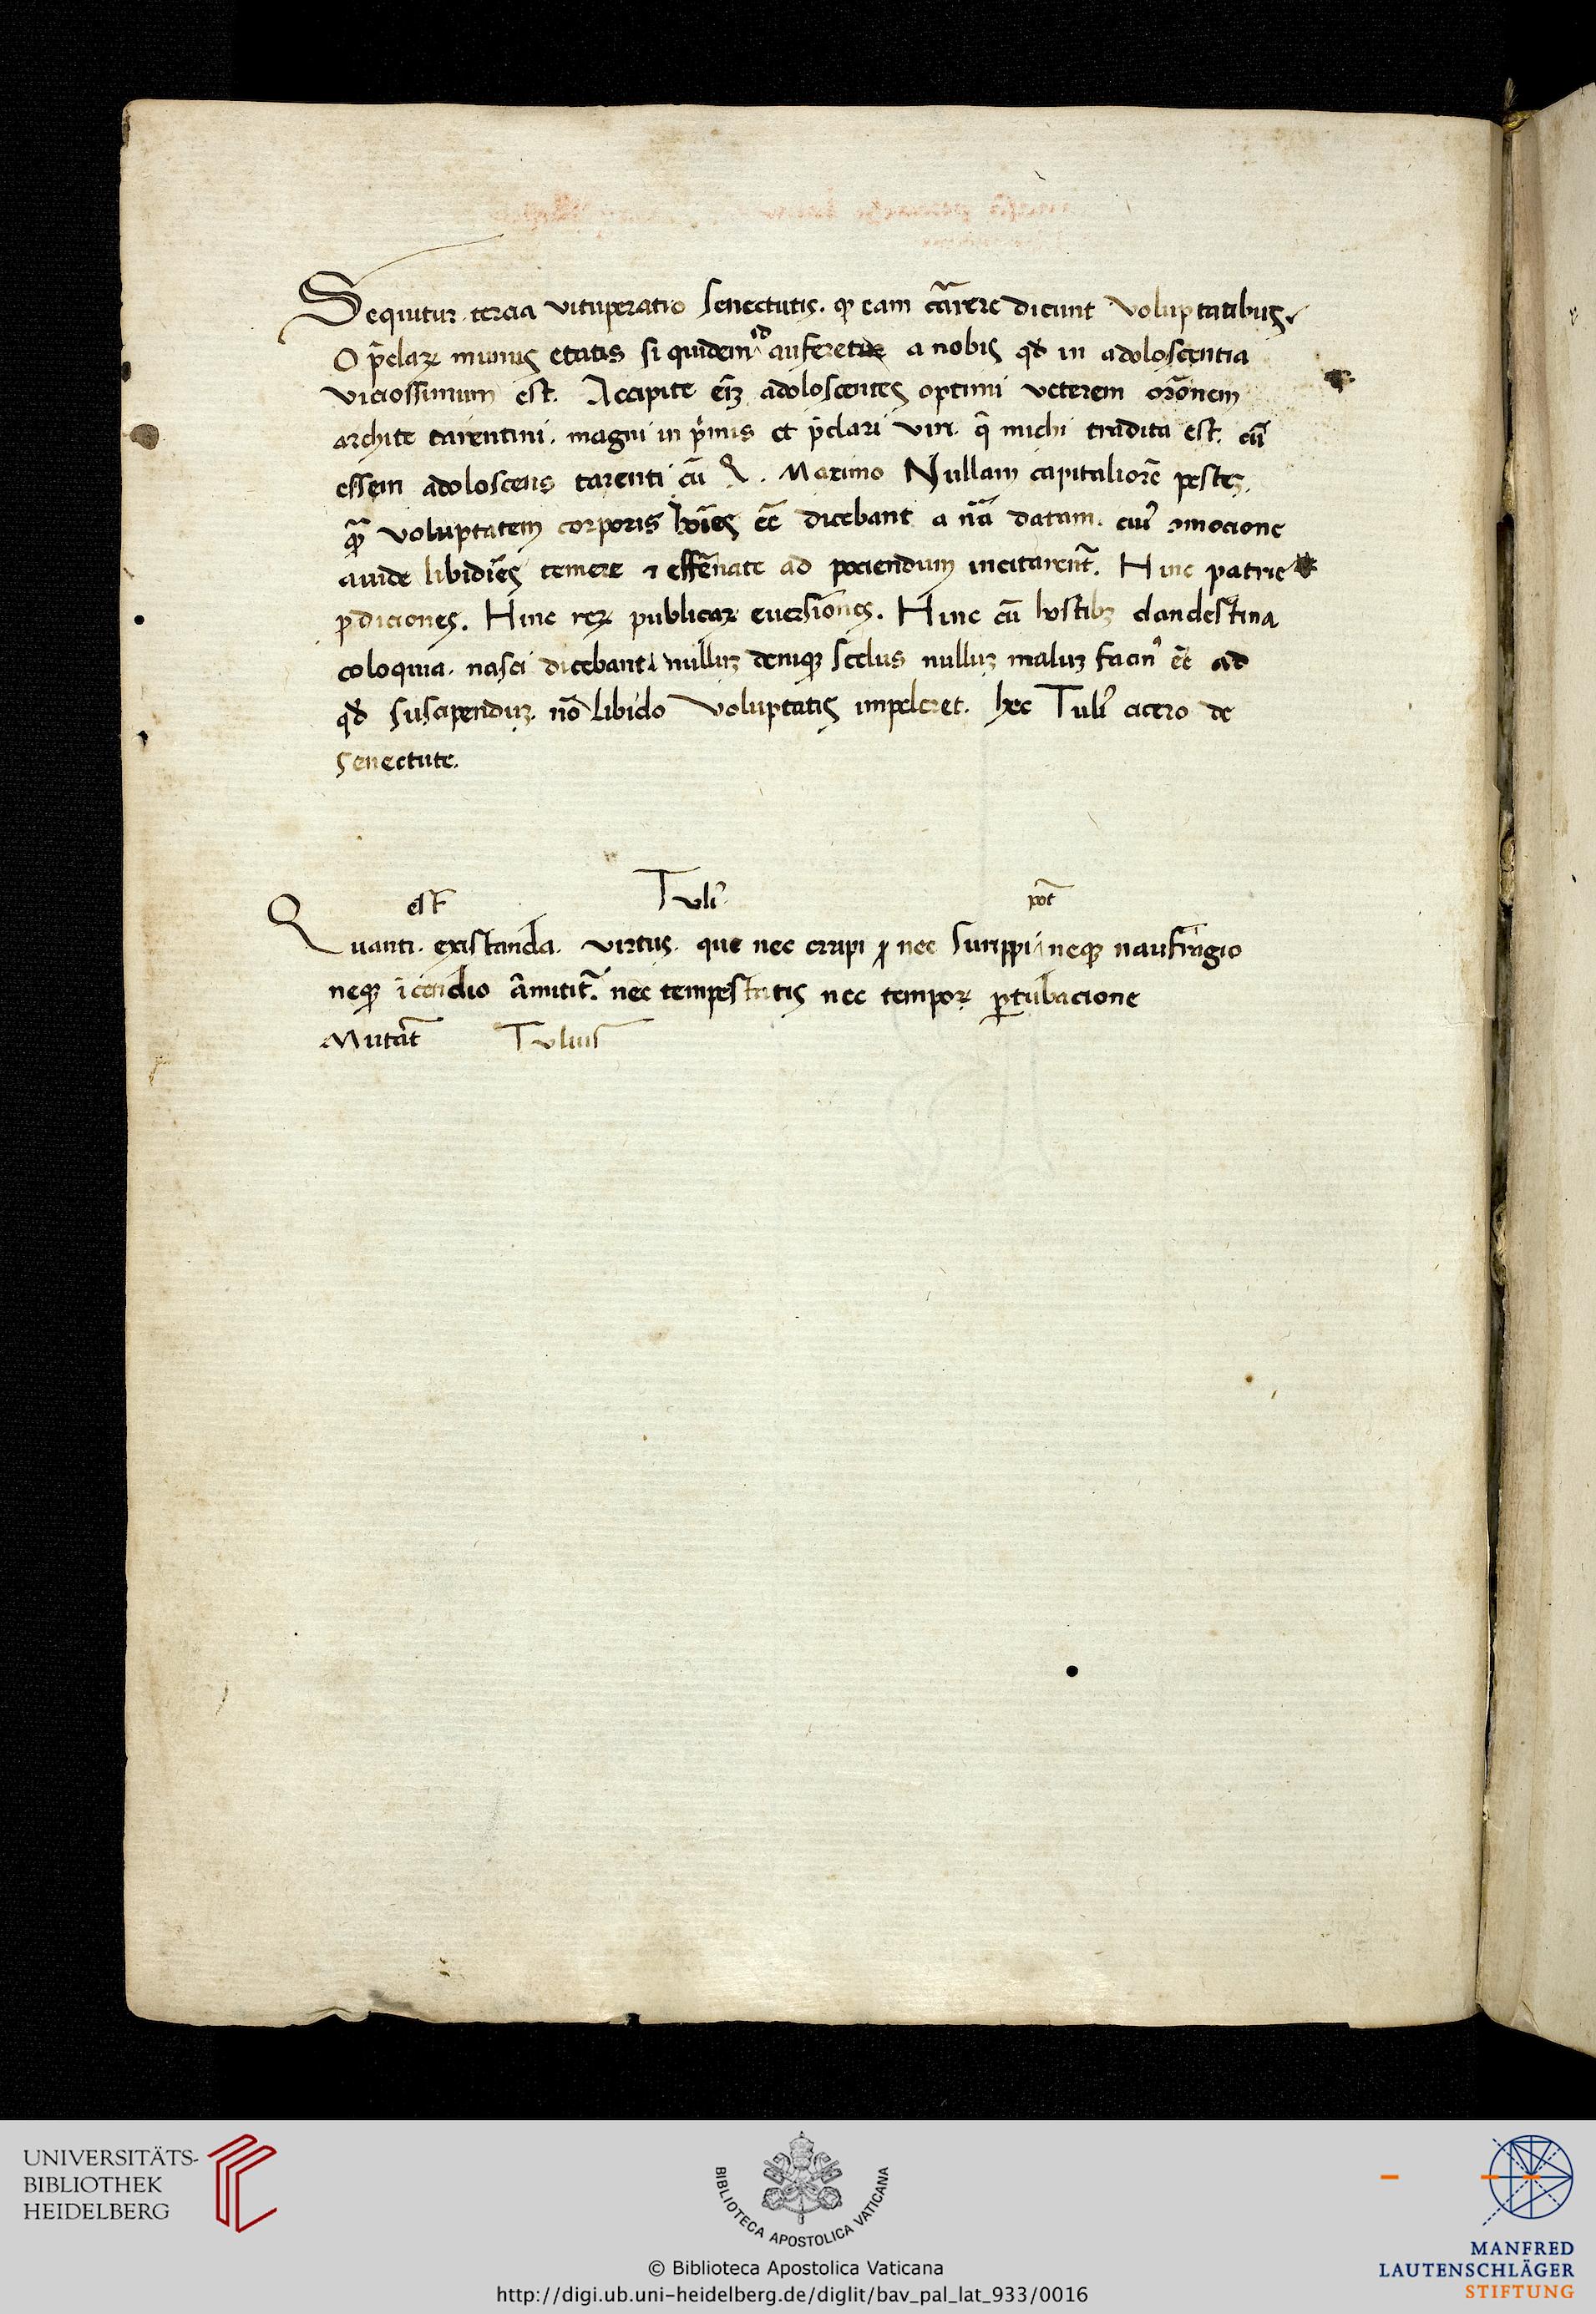 Sequitur tercia vituperatio senectutis. qꝫ eam cārere dicunt voluptatibus.
O p̄claꝝ munus etatis si quidem id auferetur a nobis qd̄ in adoloscentia
viciossimum est. Accipite em̄ adoloscentes optimi veterem orōnem
archite tarentini. magni in p̄mis et p̄clari viri. q̄ michi tradita est. cū
essem adoloscens tarenti cū Q. Maximo Nullam capitaliorē pesteꝫ.
qꝫ̄ voluptatem corporis hoīes eē dicebant a nā datam. cuiꝰ ꝯmocione
auide libidīes temere ⁊ effrēnate ad pociendum incitarent᷑. Hinc patrie
ꝓdiciones. Hinc reꝝ publicaꝝ euersiones. Hinc cū hostibꝫ clandestina
coloquia. nasci dicebant nulluꝫ deniqꝫ scelus nulluꝫ maluꝫ facinꝰ eē ad
qd̄ suscipienduꝫ nō libido voluptatis impeleret. hec Tuliꝰ cicero de
senectute.
est Tuliꝰ pot̄
Quanti. existanda. virtus. que nec eripi nec surippi neqꝫ naufragio
neqꝫ īcendio āmitit᷑. nec tempestatis nec tempoꝝ ꝑtubacione
Mutat᷑ Tulius
UNIVERSITÄTS-
BIBLIOTHEK
HEIDELBERG
BIBLIOTECA APOSTOLICA VATICANA
MANFRED
LAUTENSCHLÄGER
STIFTUNG
© Biblioteca Apostolica Vaticana
http://digi.ub.uni-heidelberg.de/diglit/bav_pal_lat_933/0016